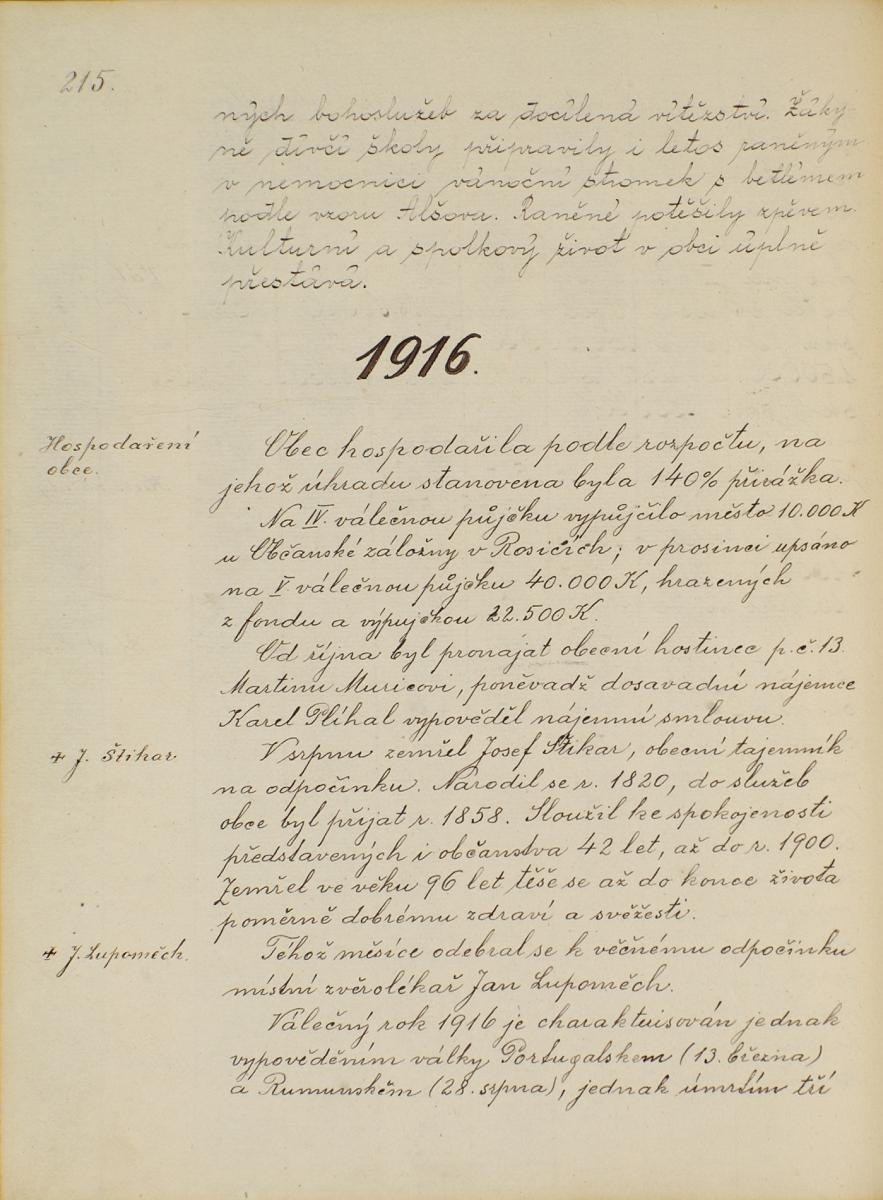 215.
ných bohoslužeb za docílená vítězství. Žáky-
ně dívčí školy připravily i letos raněným
v nemocnici vánoční stromek s betlémem
podle vzoru Alšova. Raněné potěšily zpěvem.
Kulturní a spolkový život v obci úplně
přestává.
1916.
Hospodaření
obce.
Obec hospodařila podle rozpočtu, na
jehož úhradu stanovena byla 140% přirážka.
Na IV. válečnou půjčku vypůjčilo město 10.000 K
u Občanské záložny v Rosicích; v prosinci upsáno
na V. válečnou půjčku 40.000 K, hrazených
z fondu a výpujčkou 22.500 K.
Od října byl pronajat obecní hostinec p.č. 13.
Martinu Muricovi, poněvadž dosavadní nájemce
Karel Plíhal vypověděl nájemní smlouvu.
+ J. Štikar
V srpnu zemřel Josef Štikar, obecní tajemník
na odpočinku. Narodil se r. 1820, do služeb
obce byl přijat r. 1858. Sloužil ke spokojenosti
představených i občanstva 42 let, až do r. 1900.
Zemřel ve věku 96 let těše se až do konce života
poměrně dobrému zdraví a svěžesti.
+ J. Lupoměch.
Téhož měsíce odebral se k věčnému odpočinku
místní zvěrolékař Jan Lupoměch.
Válečný rok 1916 je charaktrisován jednak
vypověděním války Portugalskem (13. března)
a Rumunskem (28. srpna), jednak úmrtím tří